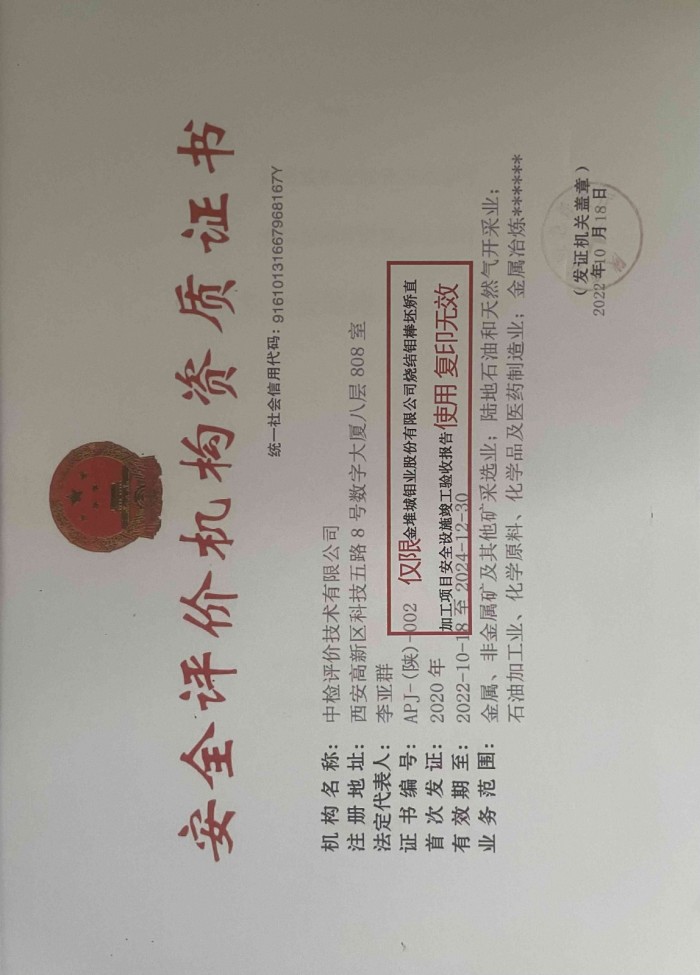 安全评价机构资质证书
统一社会信用代码：91610131667968167Y
机构名称：中检评价技术有限公司
注册地址：西安高新区科技五路8号数字大厦八层808室
法定代表人：李亚群
证书编号：APJ-(陕)-002
首次发证：2020年
有效期至：2022-10-18至2024-12-30
业务范围：金属、非金属矿及其他矿采选业；陆地石油和天然气开采业；
石油加工业、化学原料、化学品及医药制造业；金属冶炼******
仅限金堆城钼业股份有限公司烧结钼棒坯矫直
加工项目安全设施竣工验收报告使用 复印无效
（发证机关盖章）
2022年10月18日